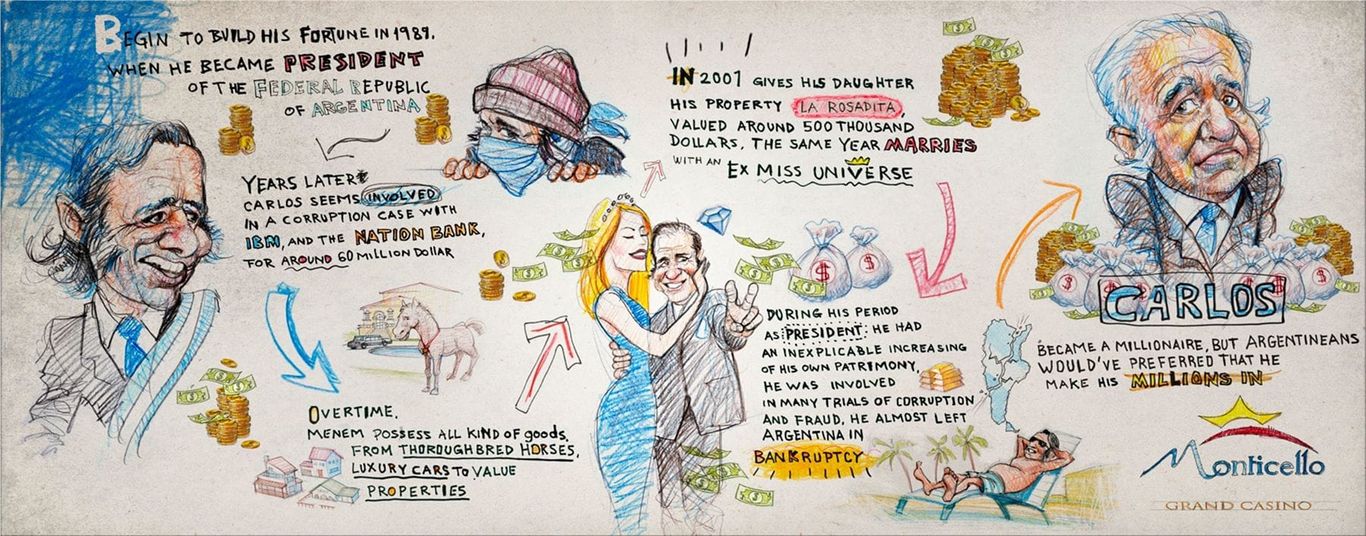 BEGIN TO BUILD HIS FORTUNE IN 1989.
WHEN HE BECAME PRESIDENT
OF THE FEDERAL REPUBLIC
OF ARGENTINA
YEARS LATER
CARLOS SEEMS INVOLVED
IN A CORRUPTION CASE WITH
IBM, AND THE NATION BANK,
FOR AROUND 60 MILLION DOLLAR
OVERTIME,
MENEM POSSESS ALL KIND OF goods,
FROM THOROUGHBRED HORSES,
LUXURY CARS TO VALUE
PROPERTIES
IN 2001 GIVES HIS DAUGHTER
HIS PROPERTY LA ROSADITA,
VALUED AROUND 500 THOUSAND
DOLLARS, THE SAME YEAR MARRIES
WITH AN EX MISS UNIVERSE
$ $
DURING HIS PERIOD
AS PRESIDENT: HE HAD
AN INEXPLICABLE INCREASING
OF HIS OWN PATRIMONY,
HE WAS INVOLVED
IN MANY TRIALS OF CORRUPTION
AND FRAUD, HE ALMOST LEFT
ARGENTINA IN
BANKRUPTCY
CARLOS
BECAME A MILLIONAIRE, BUT ARGENTINEANS
WOULD'VE PREFERRED THAT HE
MAKE HIS MILLIONS IN
Monticello
GRAND CASINO